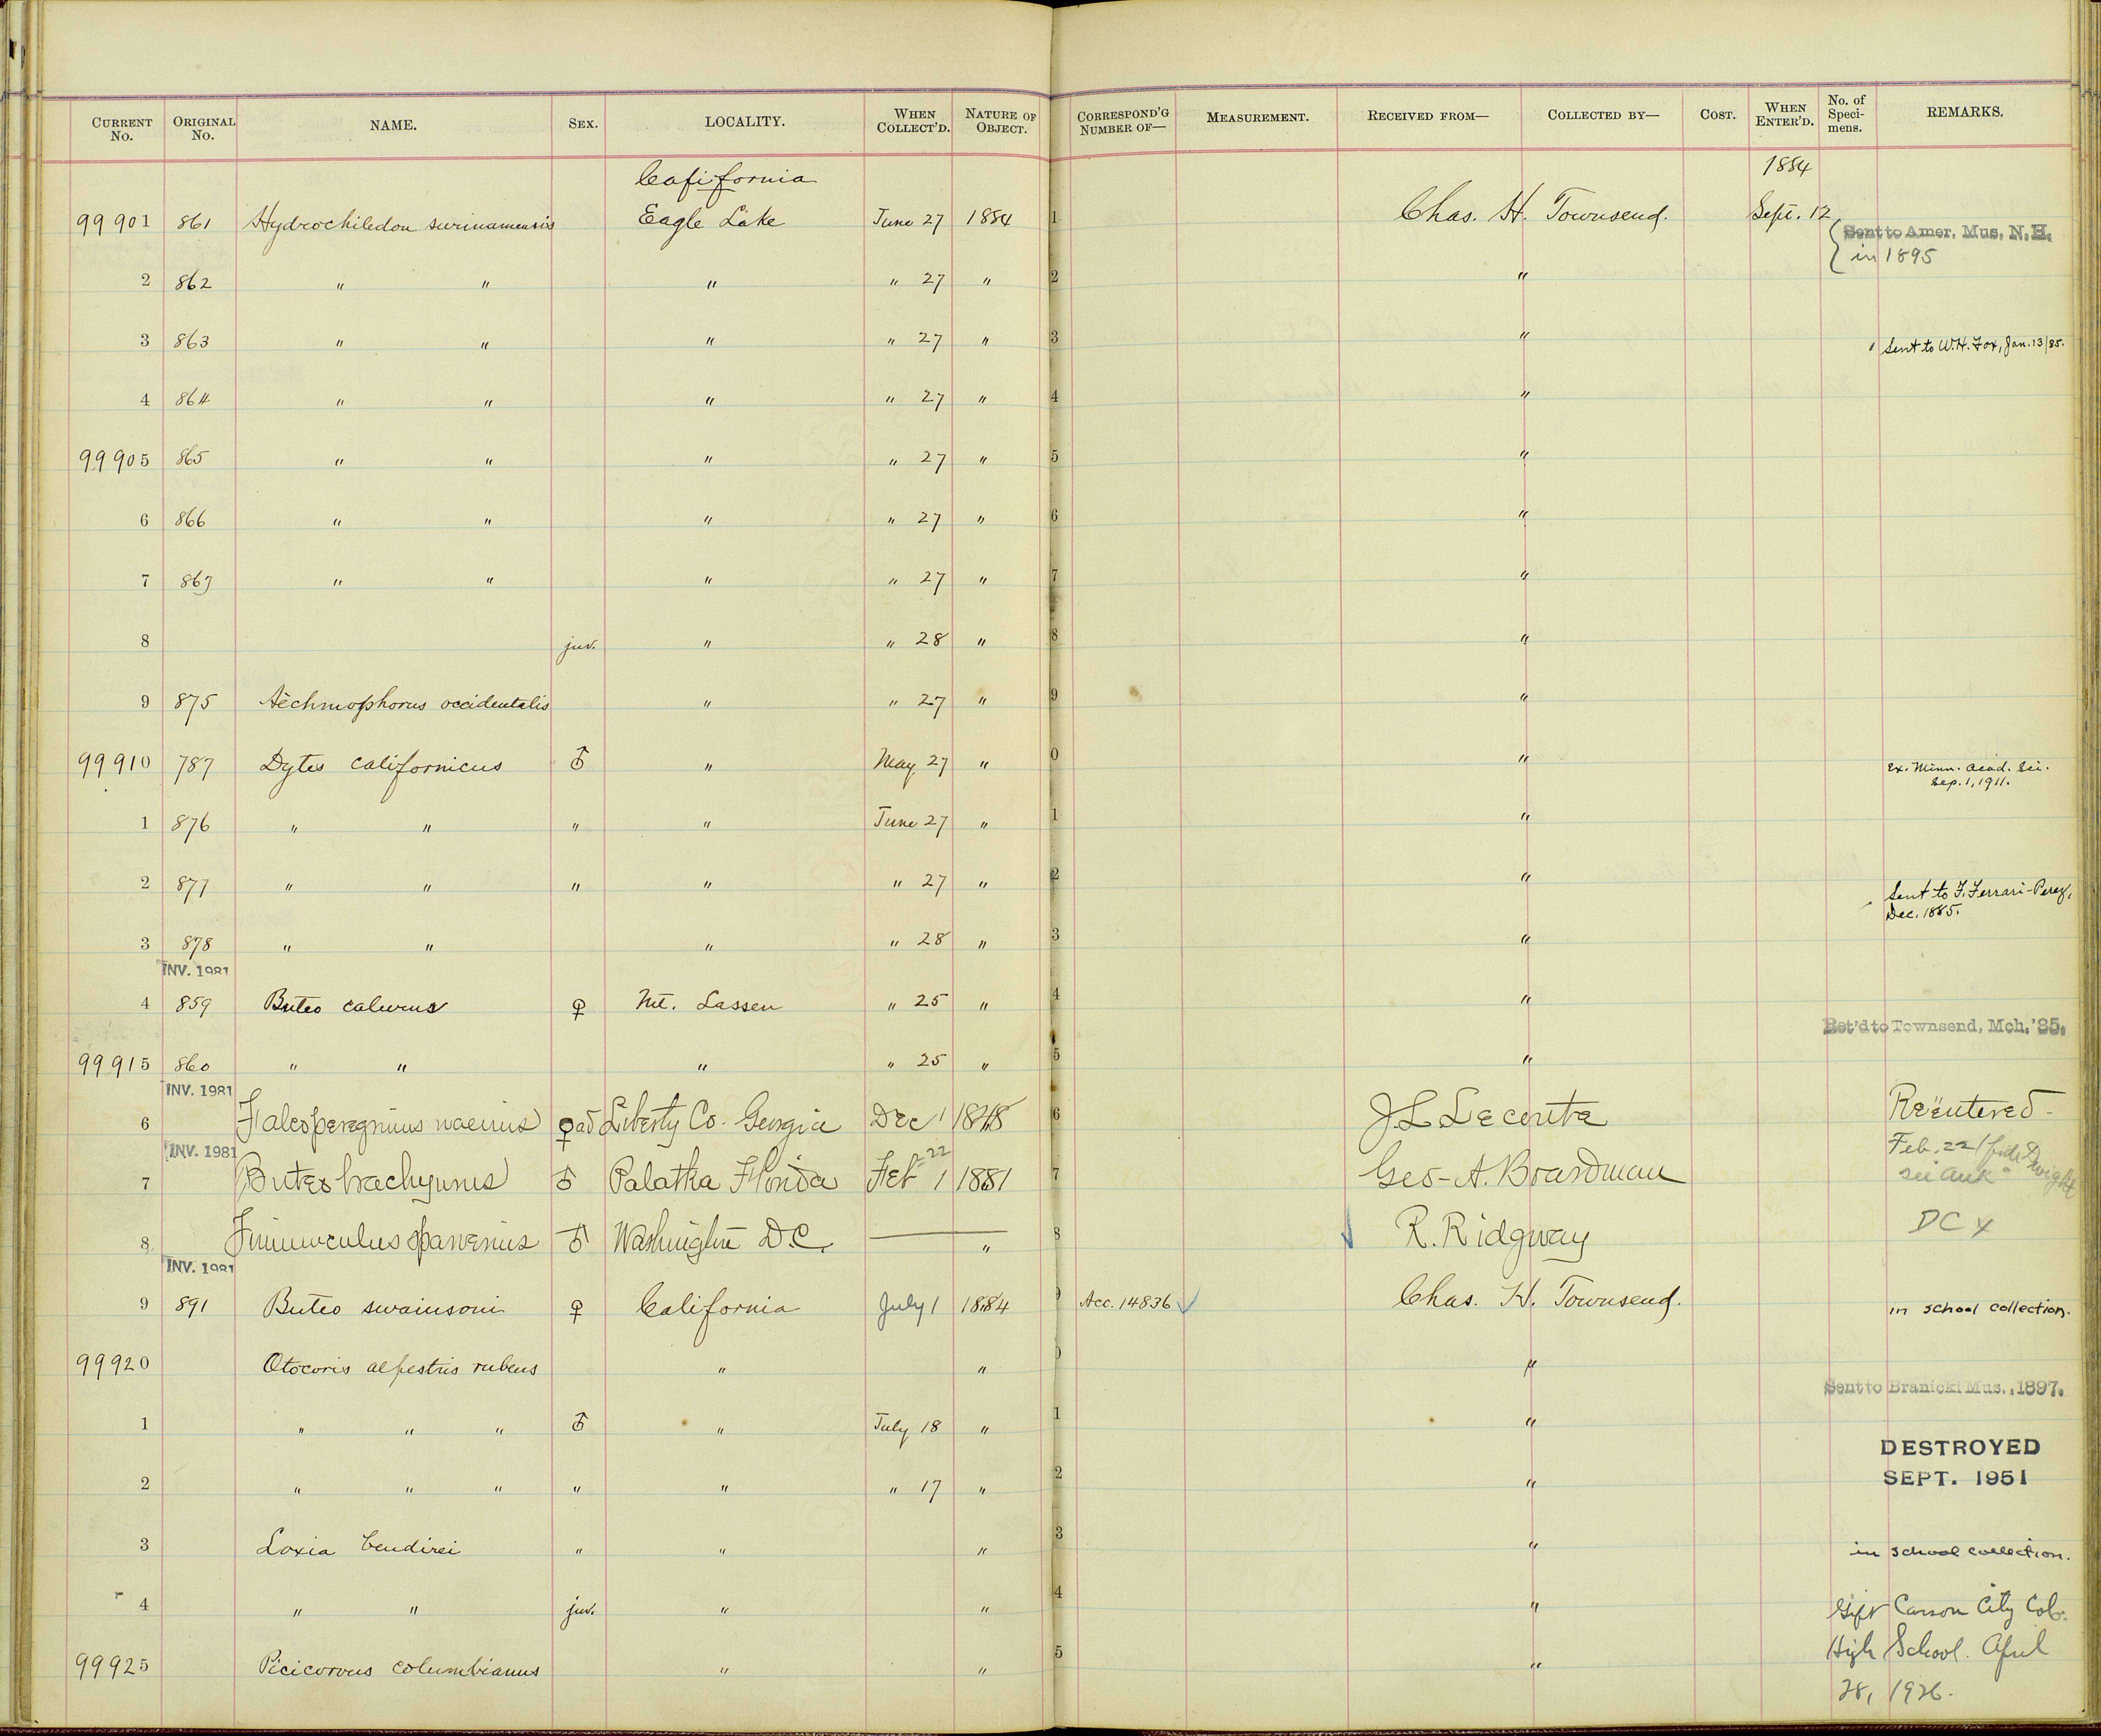 CURRENT No. ORIGINAL No. NAME. SEX. LOCALITY. WHEN COLLECT'D. NATURE OF OBJECT. CORRESPOND'G NUMBER OF— MEASUREMENT. RECEIVED FROM— COLLECTED BY— COST. WHEN ENTER'D. No. of Speci-mens. REMARKS.
California 1884
99901 861 Hydrochiledon surinamensis Eagle Lake June 27 1884 1 Chas. H. Townsend. Sept. 12 Sent to Amer. Mus. N.H.
in 1895
2 862 " " " " 27 " 2 "
3 863 " " " " 27 " 3 " Sent to W.H. Fox, Jan. 13/85.
4 864 " " " " 27 " 4 "
99905 865 " " " " 27 " 5 "
6 866 " " " " 27 " 6 "
7 867 " " " " 27 " 7 "
8 juv. " " 28 " 8 "
9 875 Aechmophorus occidentalis " " 27 " 9 "
99910 787 Dytes californicus ♂ " May 27 " 0 " Ex. Minn. Acad. Sci.
Sep. 1, 1911.
1 876 " " " " June 27 " 1 "
2 877 " " " " " 27 " 2 " Sent to F. Ferrari-Perez,
Dec. 1885.
3 878 " " " " 28 " 3 "
INV. 1981
4 859 Buteo calurus ♀ Mt. Lassen " 25 " 4 "
Ret'd to Townsend, Mch. '85.
99915 860 " " " " 25 " 5 "
INV. 1981
6 Falco peregrinus naevius ♀ ad Liberty Co. Georgia Dec 1 1848 6 J L Leconte Reëntered
INV. 1981 Feb. 22 / fide Dwight
7 Buteo brachyurus ♂ Palatka Florida Feb 1 22 1881 7 Geo-A. Boardman see Auk
8 Tinnunculus sparverius ♂ Washington D.C. " 8 R. Ridgway DC x
INV. 1981
9 891 Buteo swainsoni ♀ California July 1 1884 9 Acc. 14836 Chas. H. Townsend. in school collection.
99920 Otocoris alpestris rubeus " " 0 "
Sent to Branicki Mus., 1897.
1 " " " ♂ " July 18 " 1 "
DESTROYED
SEPT. 1951
2 " " " " " " 17 " 2 "
3 Loxia bendirei " " " 3 " in school collection.
4 " " juv. " " 4 " Gift Canon City Colo.
High School. April
99925 Picicorvus columbianus " " 5 "
28, 1926.